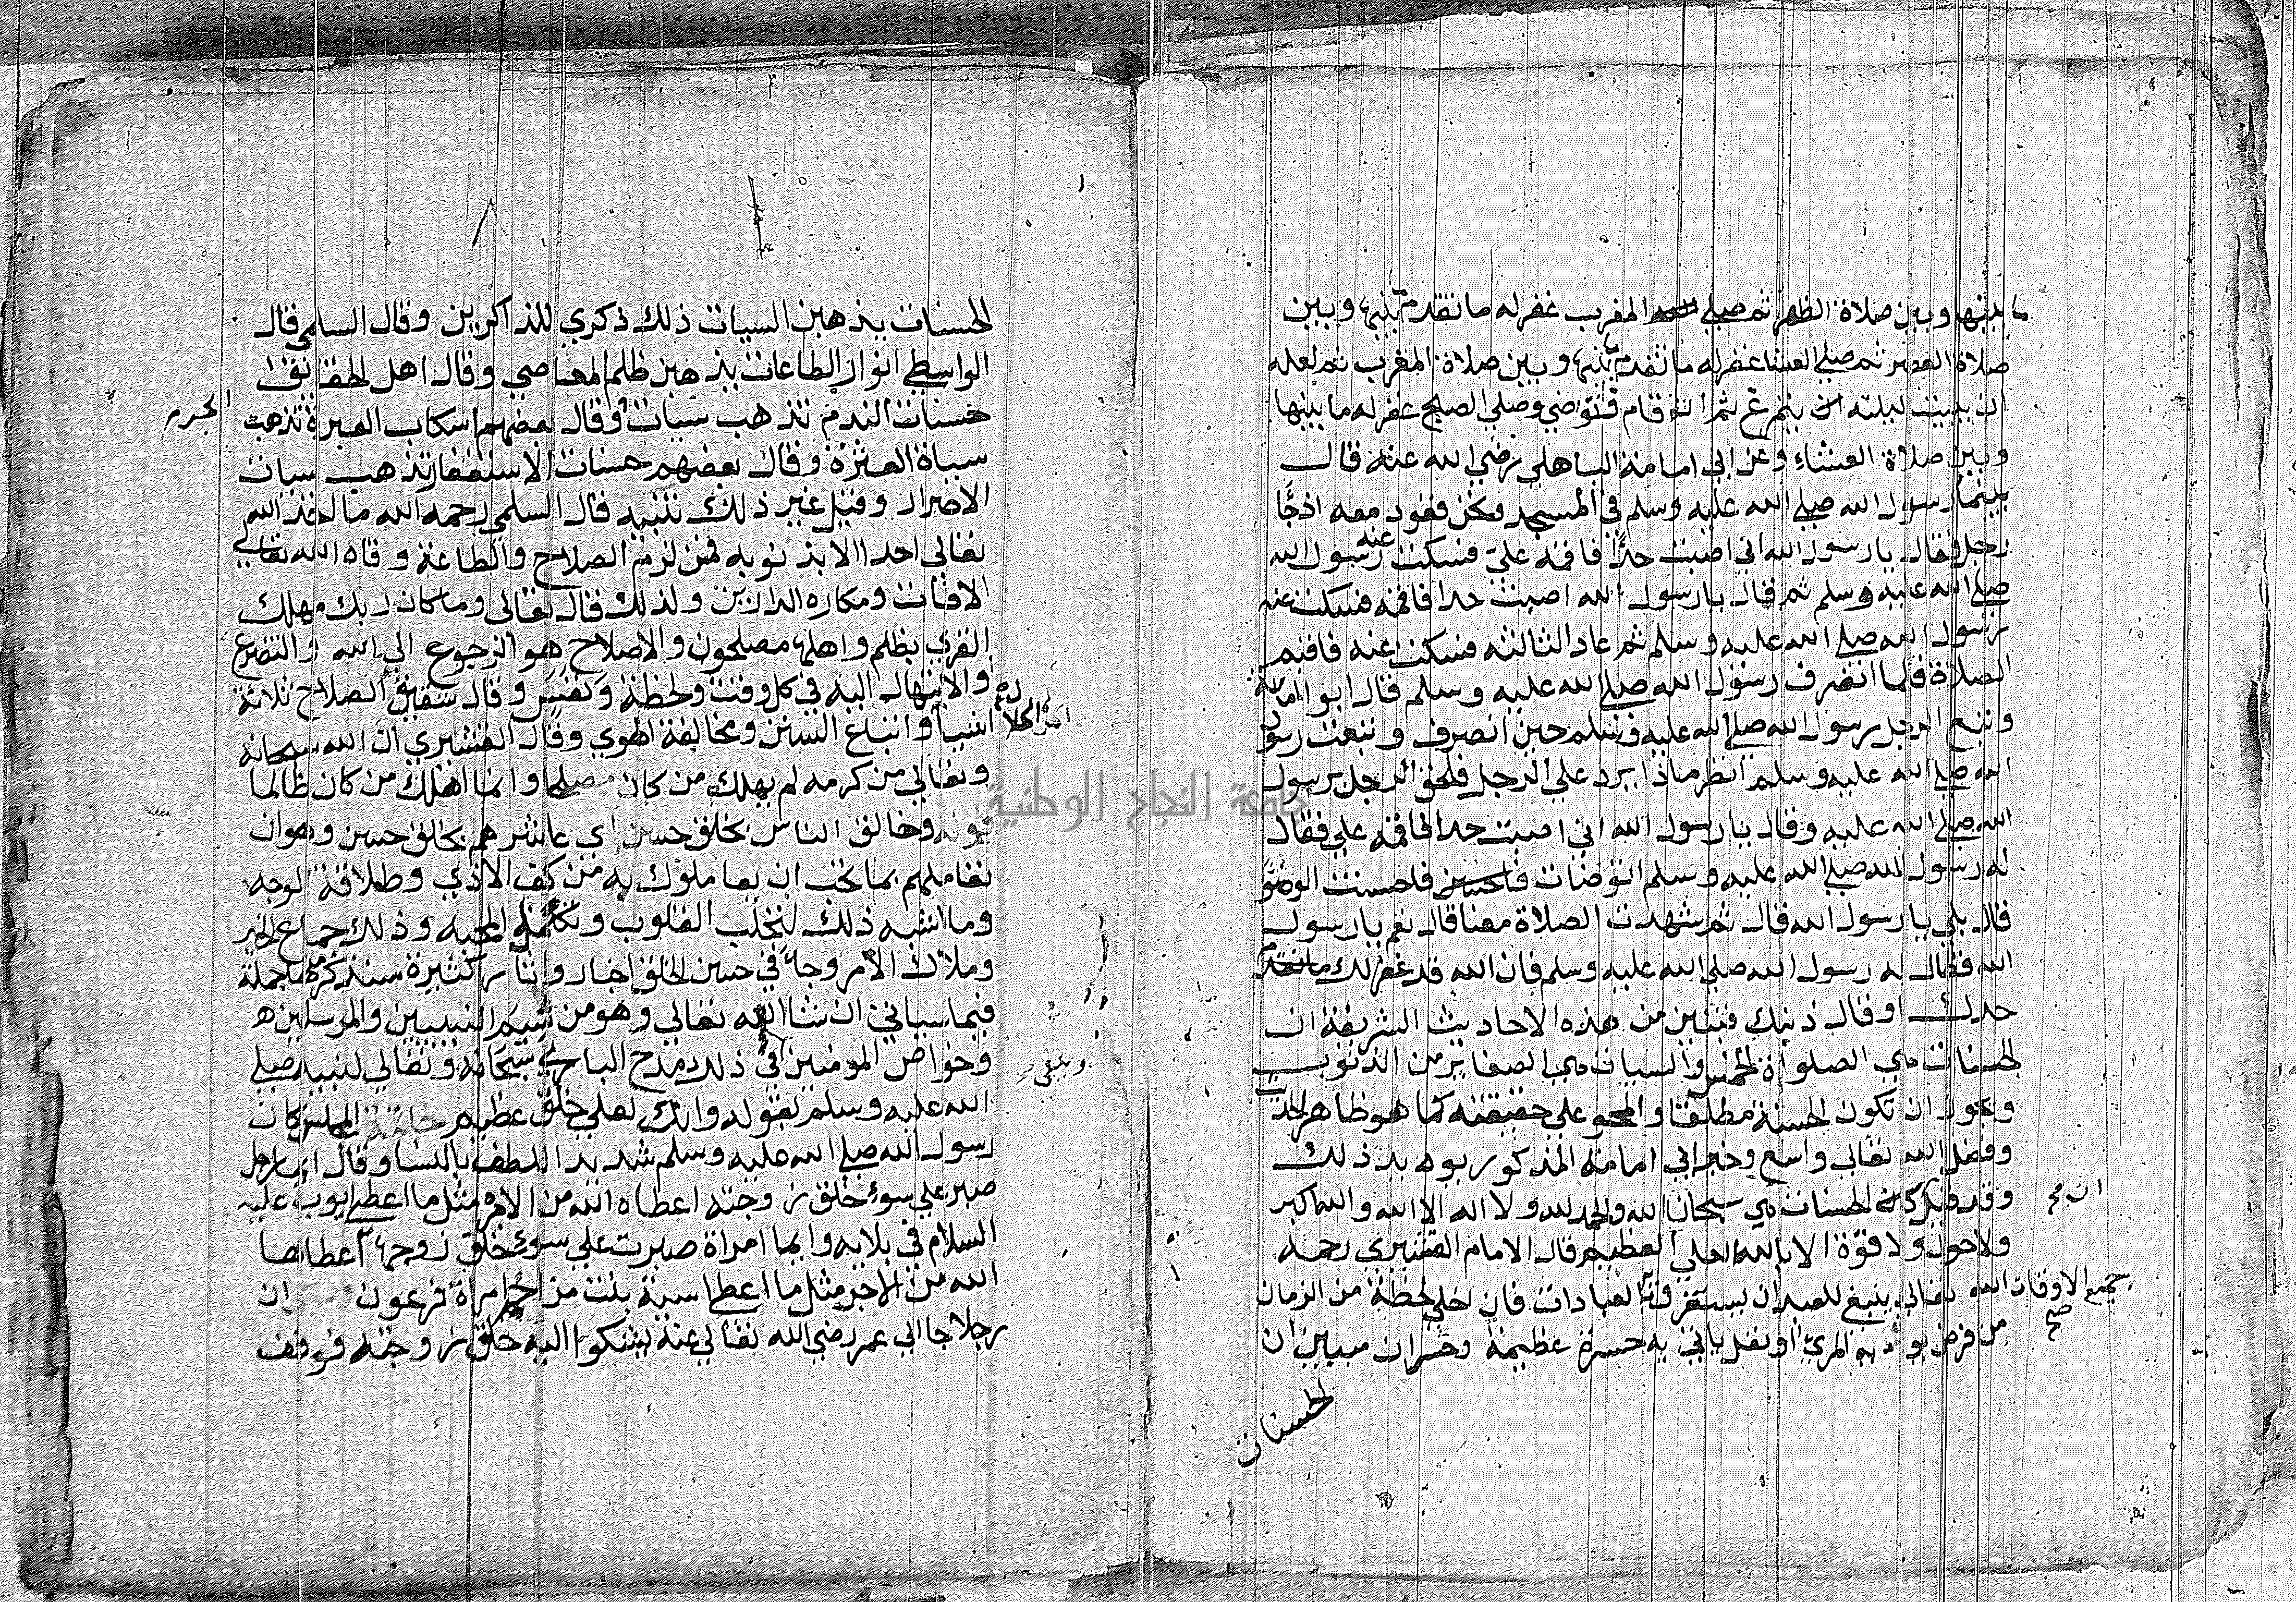 ما بينها وبين صلاة الظهر ثم صلى المغرب غفر له ما تقدم بينها وبين
صلاة العصر ثم صلى العشا غفر له ما تقدم بينها وبين صلاة المغرب ثم لعله
ان يبيت ليلته ان يتمرغ ثم ان قام فتوضي وصلى الصبح غفر له ما بينها
وبين صلاة العشاء وعن ابي امامة الباهلي رضي الله عنه قال
بينما رسول الله صلى الله عليه وسلم في المسجد ونحن قعود معه اذ جا
رجل فقال يا رسول الله اني اصبت حدا فاقمه علي فسكت عنه رسول الله
صلى الله عليه وسلم ثم قال يا رسول الله اصبت حدا فاقمه فسكت عنه
رسول الله صلى الله عليه وسلم ثم عاد الثالثه فسكت عنه فاقيم
الصلاة فلما انصرف رسول الله صلى الله عليه وسلم قال ابو امامة
وتبع الرجل رسول الله صلى الله عليه وسلم حين انصرف وتبعت رسول
الله صلى الله عليه وسلم انظر ماذا يرد علي الرجل فلحق الرجل برسول
الله صلى الله عليه وقال يا رسول الله اني اصبت حدا فاقمه علي فقال
له رسول الله صلى الله عليه وسلم اتوضات فاحسنت الوضو
قال بلى يا رسول الله قال ثم شهدت الصلاة معنا قال نعم يا رسول
الله فقال له رسول الله صلى الله عليه وسلم فان الله قد غفر لك
حدك او قال ذنبك فتبين من هذه الاحاديث الشريفة ان
الحسنات هي الصلوات الخمس والسيات هي الصغاير من الذنوب
ويجوز ان تكون الحسنة مطلقا والمحو على حقيقته كما هو ظاهر الحديث
وفضل الله تعالى واسع وخبر ابي امامة المذكور يويد ذلك
وقد قيل ان الحسنات هي سبحان الله والحمد لله ولا اله الا الله والله اكبر
ولا حول ولا قوة الا بالله العلي العظيم قال الامام القشيري رحمه
الله تعالى ينبغي للعبد ان يستغرق جميع الاوقات بالعبادات فان لخلي لحظة من الزمان
من فرض يوديه المرء او نفل ياتي به حسرة عظيمة وخسران مبين ان
الحسنات
الحسنات يذهبن السيات ذلك ذكرى للذاكرين وقال السلمي قال
الواسطي انوار الطاعات يذهبن ظلم المعاصي وقال اهل الحقائق
حسنات الندم تذهب سيات الجرم وقال بعضهم اسكاب العبرة تذهب
سياة العثرة وقال بعضهم حسنات الاستغفار تذهب سيات
الاصرار وقيل غير ذلك تنبيه قال السلمي رحمه الله ما اخذ الله
تعالى احدا الا بذنوبه فمن لزم الصلاح والطاعة وقاه الله تعالى
الافات ومكاره الدارين ولذلك قال تعالى وما كان ربك مهلك
القرى بظلم واهلها مصلحون والاصلاح هو الرجوع الى الله والتضرع
والابتهال اليه في كل وقت ولحظة ونفس وقال شقيق الصلاح ثلاثة
اشيا واتباع السنن ومخالفة الهوى وقال القشيري ان الله سبحانه
وتعالى من كرمه لم يهلك من كان مصلحا وانما اهلك من كان ظالما
قوله وخالق الناس بخلق حسن اي عاشرهم بخلق حسن وهو ان
تعاملهم بما تحب ان يعاملوك به من كف الاذى وطلاقة الوجه
وما اشبه ذلك لتنجلب القلوب وتكمل المحبه وذلك جماع الخير
وملاك الامر وجا في حسن الخلق اخبار واثار كثيرة سنذكر منها جملة
فيما سياتي ان شا الله تعالى وهو من شيم النبيين والمرسلين
وخواص المومنين وفي ذلك مدح الباري سبحانه وتعالى لنبيه صلى
الله عليه وسلم بقوله وانك لعلى خلق عظيم خاتمة المجلس كان
رسول الله صلى الله عليه وسلم شديد اللطف بالنسا وقال ايما رجل
صبر على سوء خلق زوجته اعطاه الله من الاجر مثل ما اعطى ايوب عليه
السلام في بلايه وايما امراة صبرت على سوء خلق زوجها اعطاها
الله من الاجر مثل ما اعطى اسية بنت مزاحم امراة فرعون وحكي ان
رجلا جا الى عمر رضي الله تعالى عنه يشكوا اليه خلق زوجته فوقف
جامعة النجاح الوطنية